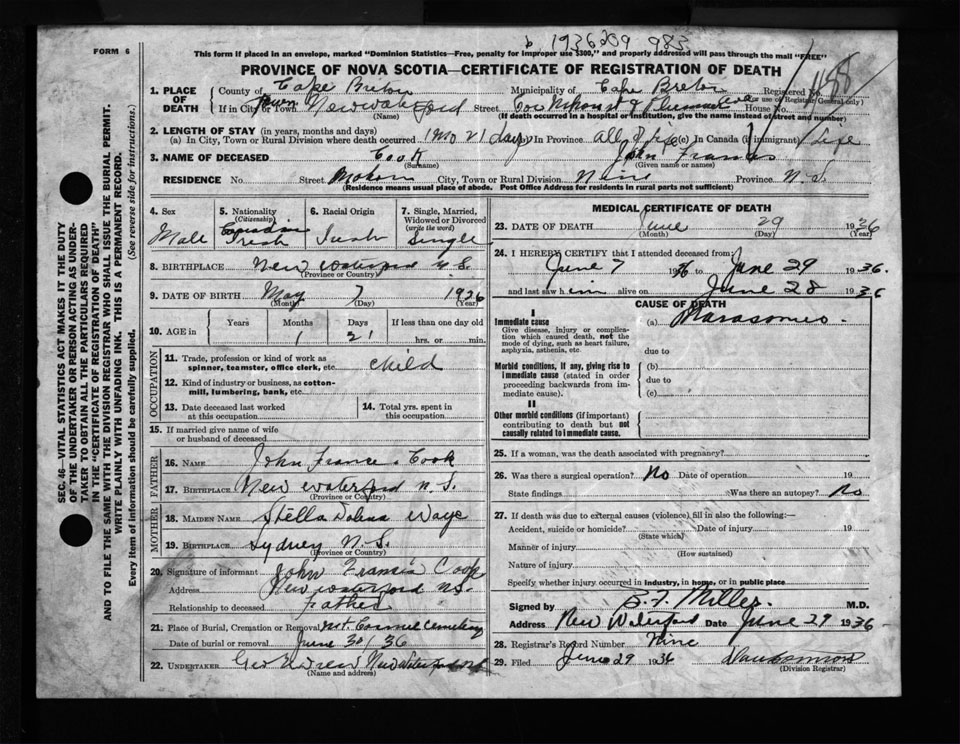 FORM 6
1936209 983
This form if placed in an envelope, marked "Dominion Statistics—Free, penalty for improper use $300," and properly addressed will pass through the mail "FREE"
PROVINCE OF NOVA SCOTIA—CERTIFICATE OF REGISTRATION OF DEATH
1. PLACE OF DEATH County of Cape Breton Municipality of Cape Breton Registered No.
(For use of Registrar General only)
If in City or Town Town New Waterford Street Cor House No.
(Name) (If death occurred in a hospital or institution, give the name instead of street and number)
2. LENGTH OF STAY (in years, months and days)
(a) In City, Town or Rural Division where death occurred 1 mo 21 days (b) In Province All of life (c) In Canada (if immigrant) Life
3. NAME OF DECEASED Cook John Francis
(Surname) (Given name or names)
RESIDENCE No. Street City, Town or Rural Division Province N.S.
(Residence means usual place of abode. Post Office Address for residents in rural parts not sufficient)
4. Sex Male
5. Nationality (Citizenship) Canadian Irish
6. Racial Origin Irish
7. Single, Married, Widowed or Divorced (write the word) Single
8. BIRTHPLACE New Waterford N.S.
(Province or Country)
9. DATE OF BIRTH May 7 1936
(Month) (Day) (Year)
10. AGE in Years Months Days If less than one day old
1 21 hrs. or min.
OCCUPATION
11. Trade, profession or kind of work as spinner, teamster, office clerk, etc. child
12. Kind of industry or business, as cotton-mill, lumbering, bank, etc.
13. Date deceased last worked at this occupation
14. Total yrs. spent in this occupation
15. If married give name of wife or husband of deceased
FATHER
16. NAME John Francis Cook
17. BIRTHPLACE New Waterford N.S.
(Province or Country)
MOTHER
18. MAIDEN NAME Stella Waye
19. BIRTHPLACE Sydney N.S.
(Province or Country)
20. Signature of informant John Francis Cook
Address New Waterford N.S.
Relationship to deceased Father
21. Place of Burial, Cremation or Removal Mt Carmel Cemetery
Date of burial or removal June 30/36
22. UNDERTAKER Geo New Waterford
(Name and address)
MEDICAL CERTIFICATE OF DEATH
23. DATE OF DEATH June 29 1936
(Month) (Day) (Year)
24. I HEREBY CERTIFY that I attended deceased from:
June 7 1936 to June 29 1936.
and last saw him alive on June 28 1936
CAUSE OF DEATH
I
Immediate cause (a)
Give disease, injury or complication which caused death, not the mode of dying, such as heart failure, asphyxia, asthenia, etc.
due to
Morbid conditions, if any, giving rise to immediate cause (stated in order proceeding backwards from immediate cause).
(b)
due to
(c)
II
Other morbid conditions (if important) contributing to death but not causally related to immediate cause.
25. If a woman, was the death associated with pregnancy?
26. Was there a surgical operation? No Date of operation 19
State findings Was there an autopsy? No
27. If death was due to external causes (violence) fill in also the following:—
Accident, suicide or homicide? Date of injury 19
(State which)
Manner of injury
(How sustained)
Nature of injury
Specify whether injury occurred in industry, in home, or in public place
Signed by B.F. Miller. M.D.
Address New Waterford Date June 29 1936
28. Registrar's Record Number Nine
29. Filed June 29 1936
(Division Registrar)
SEC. 46—VITAL STATISTICS ACT MAKES IT THE DUTY
OF THE UNDERTAKER OR PERSON ACTING AS UNDER-
TAKER TO OBTAIN ALL THE PARTICULARS REQUIRED
IN THE "CERTIFICATE OF REGISTRATION OF DEATH"
AND TO FILE THE SAME WITH THE DIVISION REGISTRAR WHO SHALL ISSUE THE BURIAL PERMIT.
WRITE PLAINLY WITH UNFADING INK. THIS IS A PERMANENT RECORD.
Every item of information should be carefully supplied. (See reverse side for instructions.)